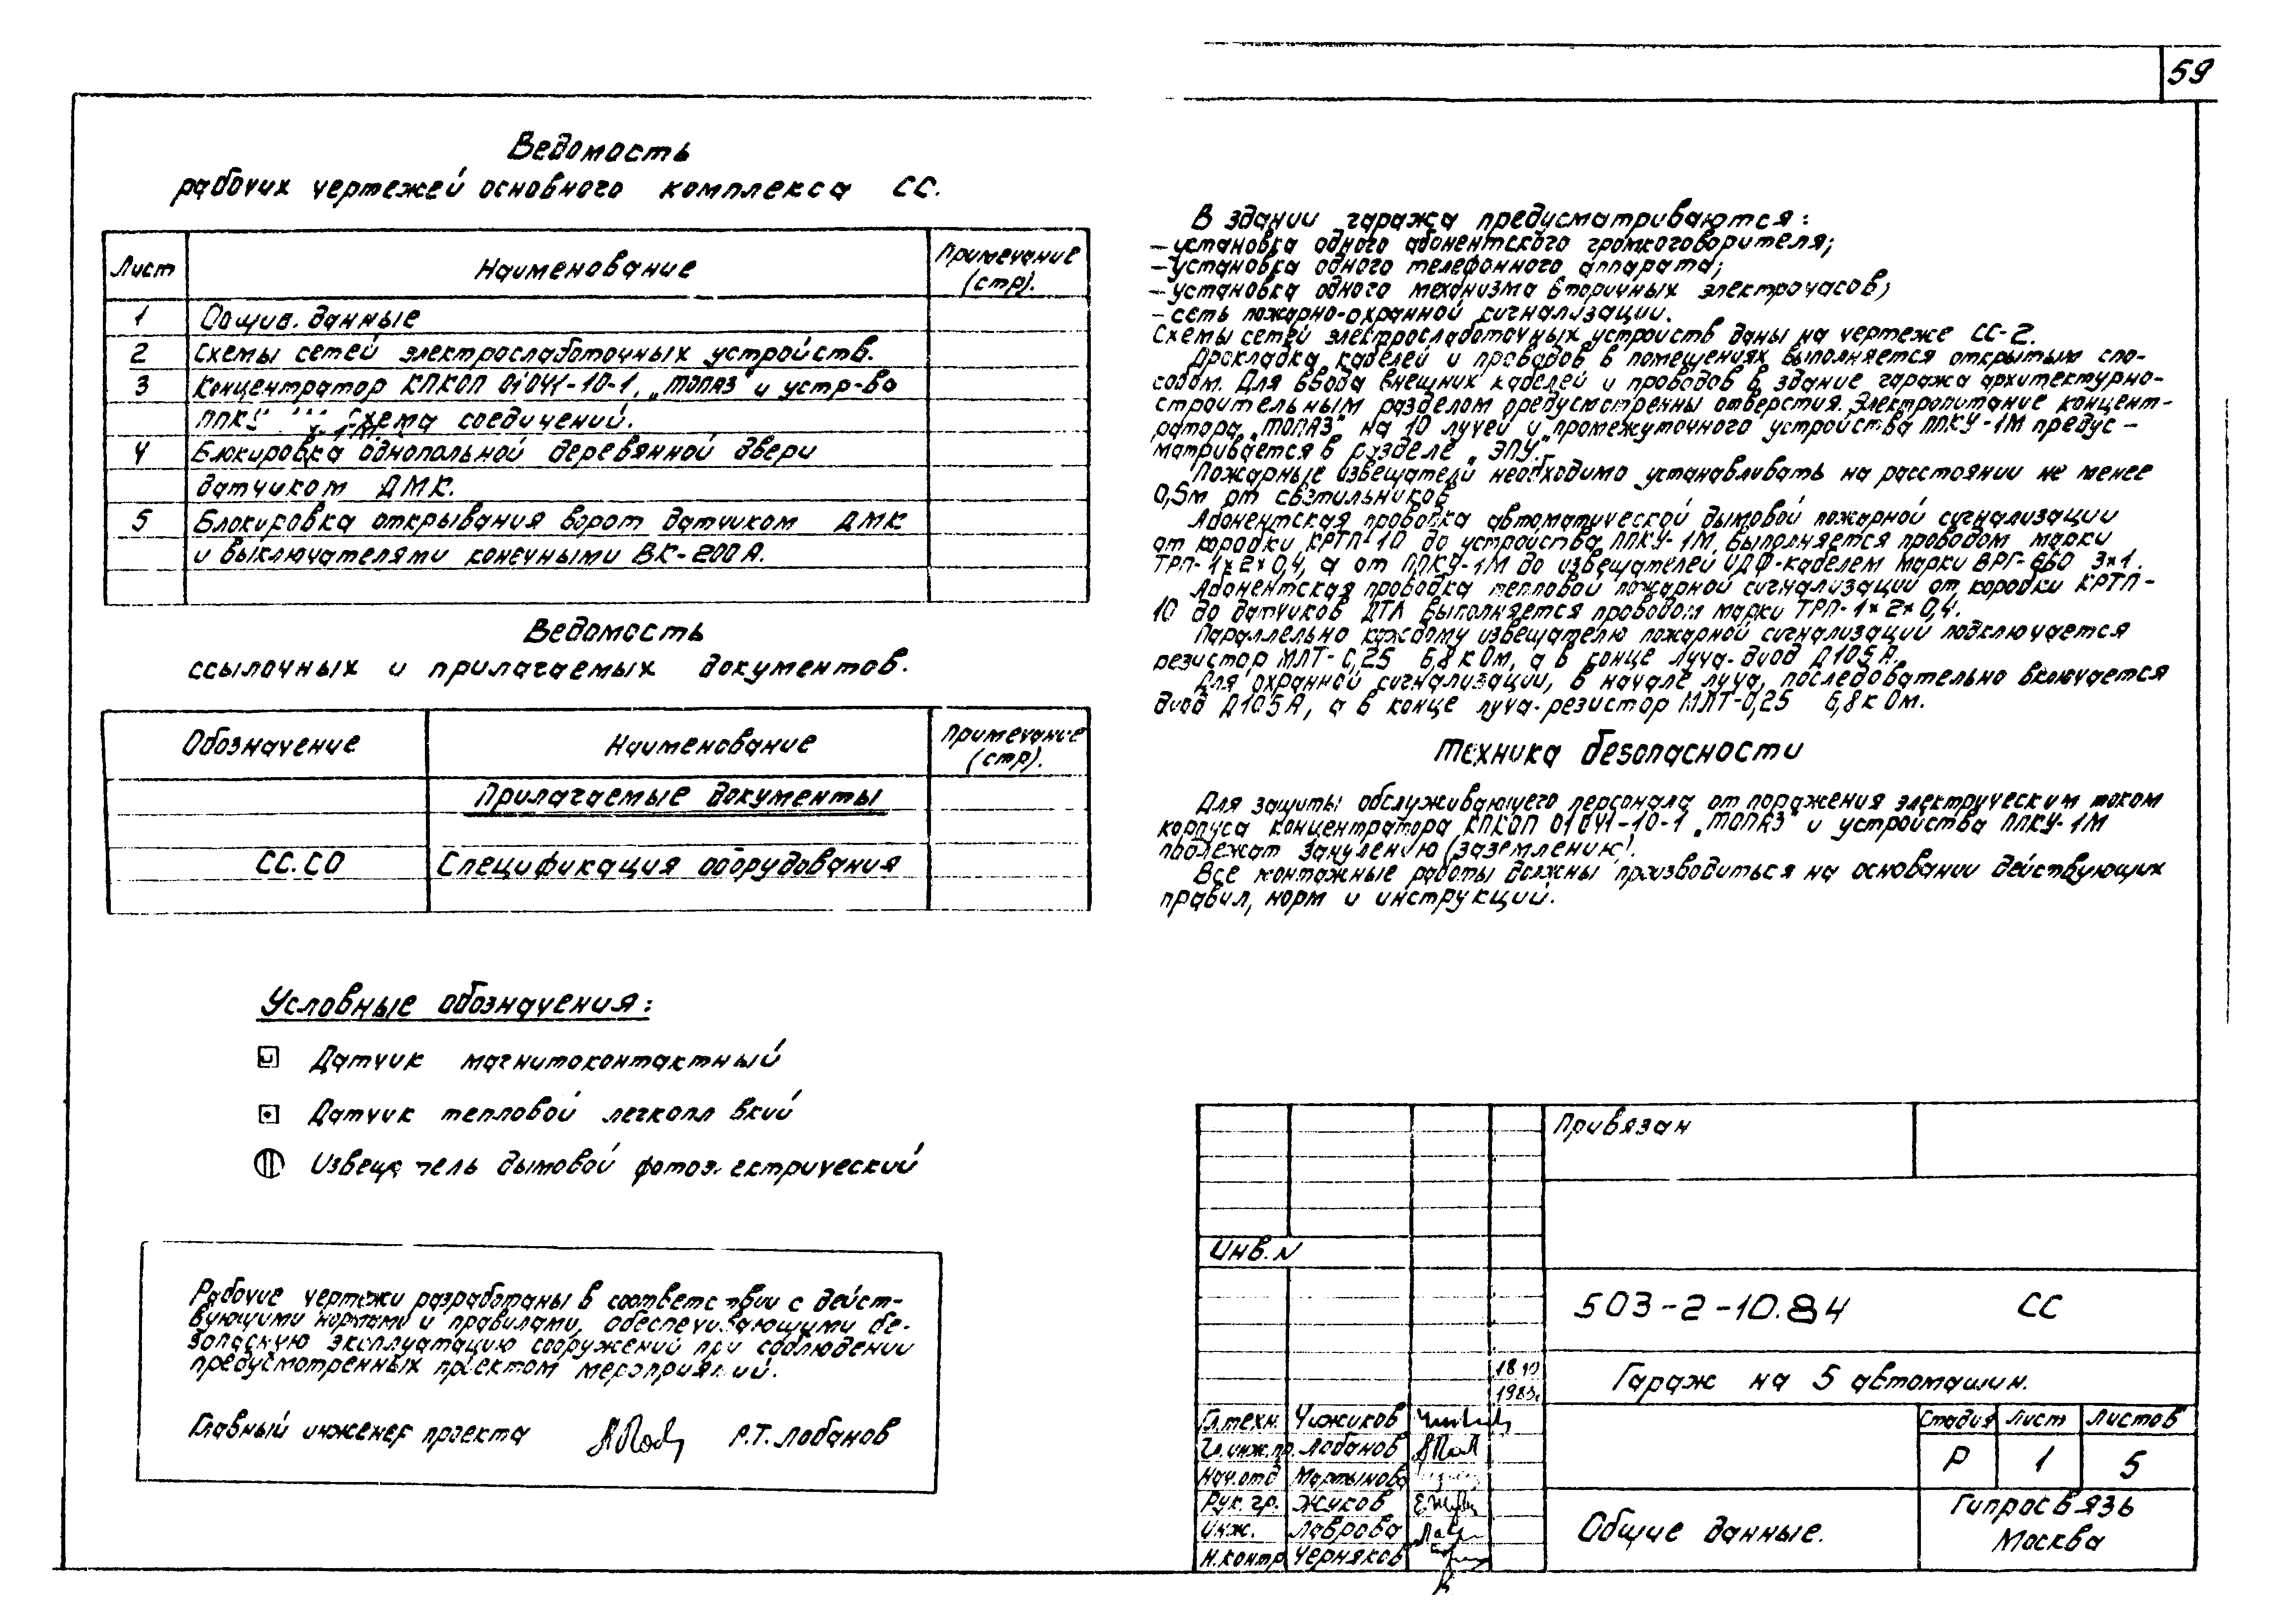 59
Ведомость
рабочих чертежей основного комплекса СС.
Лист Наименование Примечание (стр).
1 Общие данные
2 Схемы сетей электрослаботочных устройств.
3 Концентратор КПКОП 01041-10-1, „ТОПАЗ" и устр-во
ППКУ схема соединений.
4 Блокировка однопольной деревянной двери
датчиком ДМК.
5 Блокировка открывания ворот датчиком ДМК
и выключателями конечными ВК-200А.
Ведомость
ссылочных и прилагаемых документов.
Обозначение Наименование Примечание (стр).
Прилагаемые документы
СС.СО Спецификация оборудования
Условные обозначения:
Датчик магнитоконтактный
Датчик тепловой легкопл вкий
Извеща тель дымовой фотоэлектрический
Рабочие чертежи разработаны в соответствии с дейст-
вующими нормами и правилами, обеспечивающими бе-
зопасную эксплуатацию сооружений при соблюдении
предусмотренных проектом мероприятий.
Главный инженер проекта Р.Т. Лобанов
В здании гаража предусматриваются:
– установка одного абонентского громкоговорителя;
– установка одного телефонного аппарата;
– установка одного механизма вторичных электрочасов;
– сеть пожарно-охранной сигнализации.
Схемы сетей электрослаботочных устройств даны на чертеже СС-2.
Прокладка кабелей и проводов в помещениях выполняется открытым спо-
собом. Для ввода внешних кабелей и проводов в здание гаража архитектурно-
строительным разделом предусмотренны отверстия. Электропитание концент-
ратора „ТОПАЗ" на 10 лучей и промежуточного устройства ППКУ-1М предус-
матривается в разделе „ЭПУ".
Пожарные извещатели необходимо устанавливать на расстоянии не менее
0,5м от светильников
Абонентская проводка автоматической дымовой пожарной сигнализации
от коробки КРТП-10 до устройства ППКУ-1М, выполняется проводом марки
ТРП-1×2×0,4, а от ППКУ-1М до извещателей ИДФ-кабелем марки ВРГ-660 3×1.
Абонентская проводка тепловой пожарной сигнализации от коробки КРТП-
10 до датчиков ДТЛ выполняется проводом марки ТРП-1×2×0,4.
Параллельно каждому извещателю пожарной сигнализации подключается
резистор МЛТ-0,25 6,8 кОм, а в конце луча-диод Д105А.
Для охранной сигнализации, в начале луча, последовательно включается
диод Д105А, а в конце луча-резистор МЛТ-0,25 6,8 кОм.
Техника безопасности
Для защиты обслуживающего персонала от поражения электрическим током
корпуса концентратора КПКОП 01041-10-1 „ТОПАЗ" и устройства ППКУ-1М
подлежат занулению (заземлению).
Все монтажные работы должны производиться на основании действующих
правил, норм и инструкций.
Привязан
Инв.N
503-2-10.84 СС
18.10
1983г.
Гараж на 5 автомашин.
Гл.техн. Чижиков
Гл.инж.пр. Лобанов
Нач.отд Мартынова
Рук.гр. Жуков
Инж. Лаврова
Н.контр Черняков
Стадия Лист Листов
Р 1 5
Общие данные.
Гипросвязь
Москва